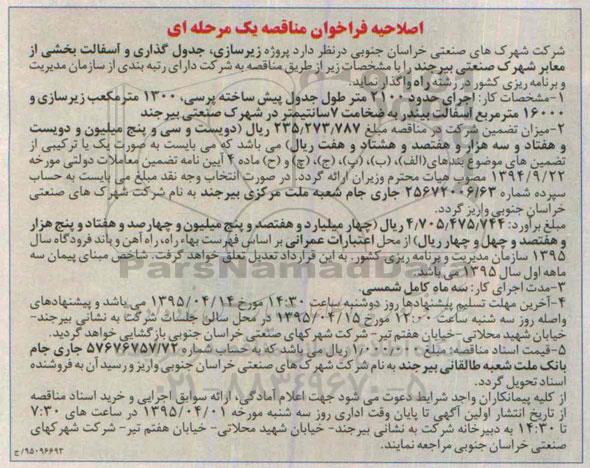 اصلاحیه فراخوان مناقصه یک مرحله ای
شرکت شهرک های صنعتی خراسان جنوبی درنظر دارد پروژه زیرسازی، جدول گذاری و آسفالت بخشی از
معابر شهرک صنعتی بیرجند را با مشخصات زیر از طریق مناقصه به شرکت دارای رتبه بندی از سازمان مدیریت
و برنامه ریزی کشور در رشته راه واگذار نماید.
۱-مشخصات کار: اجرای حدود ۲۱۰۰ متر طول جدول پیش ساخته پرسی، ۱۳۰۰ مترمکعب زیرسازی و
۱۶۰۰۰ مترمربع آسفالت بیندر به ضخامت ۷سانتیمتر در شهرک صنعتی بیرجند
۲-میزان تضمین شرکت در مناقصه مبلغ ۲۳۵/۲۷۳/۷۸۷ ریال (دویست و سی و پنج میلیون و دویست
و هفتاد و سه هزار و هفتصد و هشتاد و هفت ریال) می باشد که می بایست به صورت یک یا ترکیبی از
تضمین های موضوع بندهای(الف)، (ب)، (پ)، (ج)، (چ) و (ح) ماده ۴ آیین نامه تضمین معاملات دولتی مورخه
۱۳۹۴/۹/۲۲ مصوب هیات محترم وزیران ارائه گردد. در صورت انتخاب وجه نقد مبلغ می بایست به حساب
سپرده شماره ۲۵۶۷۲۰۰۶/۶۳ جاری جام شعبه ملت مرکزی بیرجند به نام شرکت شهرک های صنعتی
خراسان جنوبی واریز گردد.
مبلغ برآورد: ۴/۷۰۵/۴۷۵/۷۴۴ ریال (چهار میلیارد و هفتصد و پنج میلیون و چهارصد و هفتاد و پنج هزار
و هفتصد و چهل و چهار ریال) از محل اعتبارات عمرانی بر اساس فهرست بهاء راه، راه آهن و باند فرودگاه سال
۱۳۹۵ سازمان مدیریت و برنامه ریزی کشور. به این قرارداد تعدیل تعلق خواهد گرفت. شاخص مبنای پیمان سه
ماهه اول سال ۱۳۹۵ می باشد.
۳-مدت اجرای کار: سه ماه کامل شمسی.
۴-آخرین مهلت تسلیم پیشنهادها روز دوشنبه ساعت ۱۴:۳۰ مورخ ۱۳۹۵/۰۴/۱۴ می باشد و پیشنهادهای
واصله روز سه شنبه ساعت ۱۲:۰۰ مورخ ۱۳۹۵/۰۴/۱۵ در محل سالن جلسات شرکت به نشانی بیرجند-
خیابان شهید محلاتی -خیابان هفتم تیر - شرکت شهرکهای صنعتی خراسان جنوبی بازگشایی خواهد گردید.
۵-قیمت اسناد مناقصه: مبلغ ۱/۰۰۰/۰۰۰ ریال می باشد که به حساب شماره ۵۷۶۷۶۷۵۷/۷۲ جاری جام
بانک ملت شعبه طالقانی بیرجند به نام شرکت شهرک های صنعتی خراسان جنوبی واریز و رسید آن به فروشنده
اسناد تحویل گردد.
از کلیه پیمانکاران واجد شرایط دعوت می شود جهت اعلام آمادگی، ارائه سوابق اجرایی و خرید اسناد مناقصه
از تاریخ انتشار اولین آگهی تا پایان وقت اداری روز سه شنبه مورخه ۱۳۹۵/۰۴/۰۱ در ساعت های ۷:۳۰
تا ۱۴:۳۰ به دبیرخانه شرکت به نشانی بیرجند- خیابان شهید محلاتی- خیابان هفتم تیر- شرکت شهرکهای
صنعتی خراسان جنوبی مراجعه نمایند.
۹۵۰۹۶۶۹۳/ج
ParsNamadData
۰۲۱-۸۸۳۴۹۶۷۰-۵